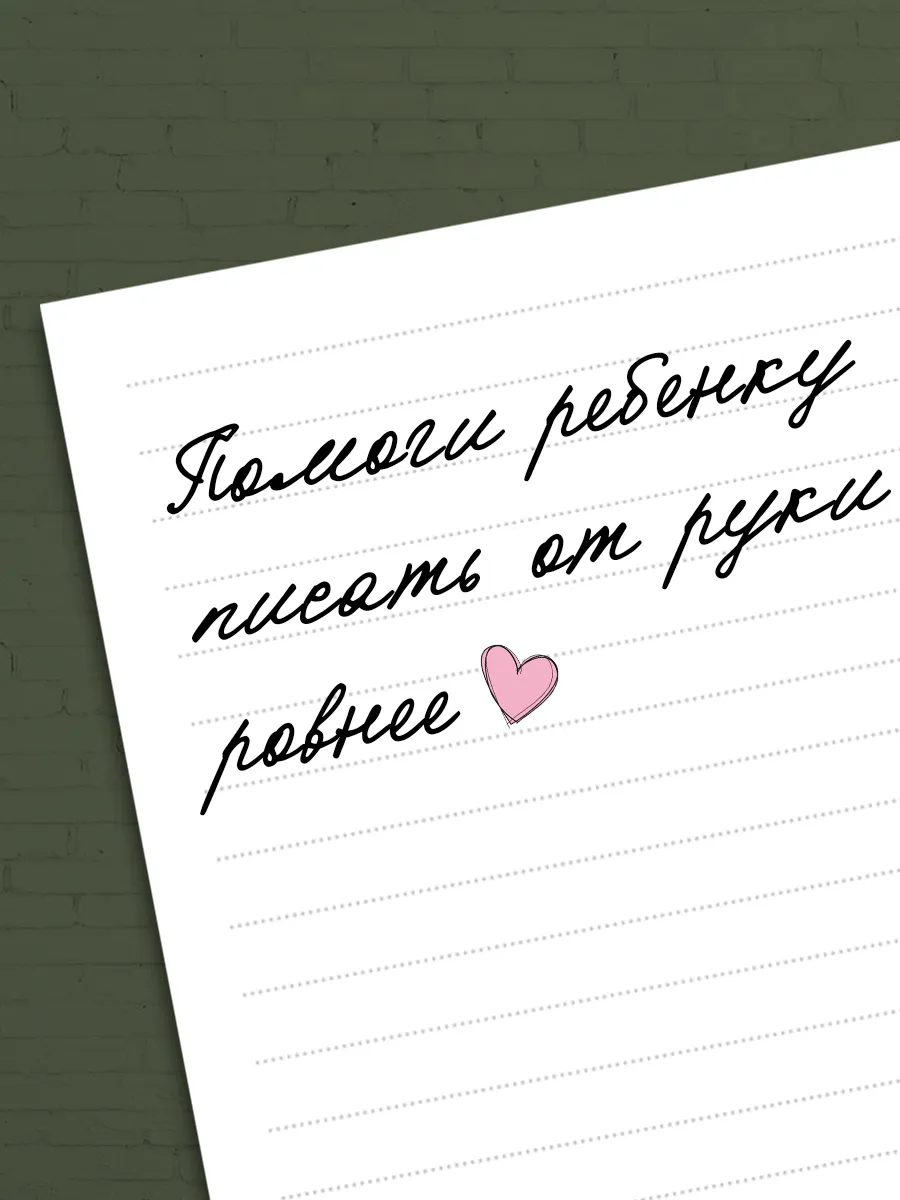 Помоги ребенку
писать от руки
ровнее